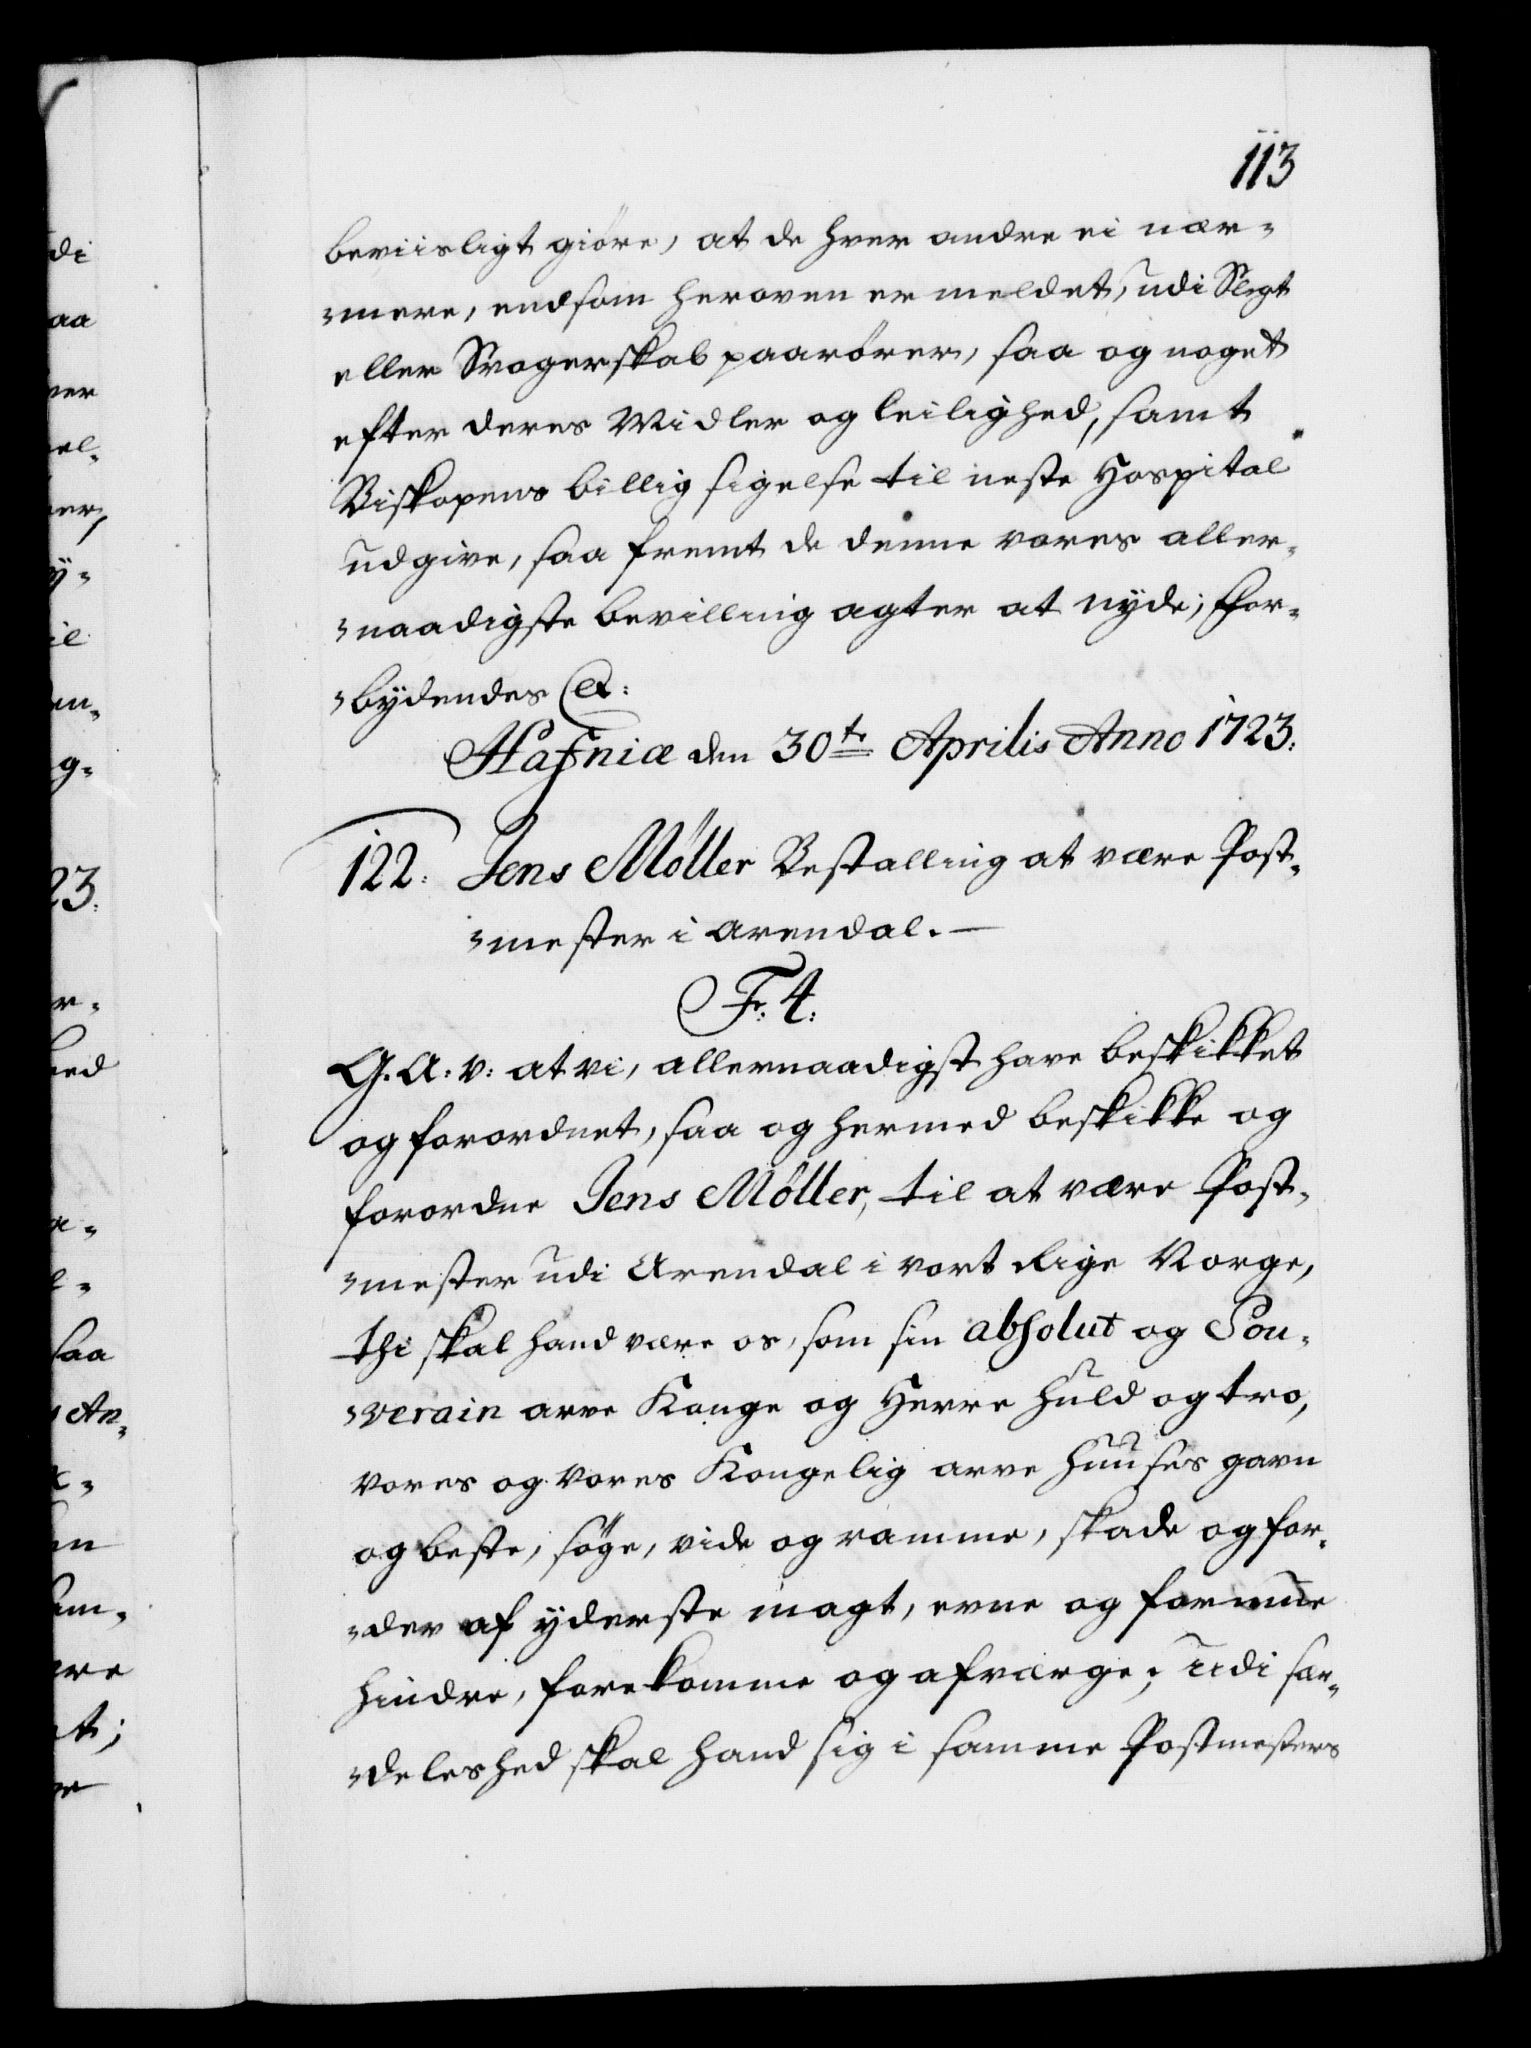 113
beviisligt giöre, at de hver andre ei nær-
-mere, end som heroven er meldet, udi Slegt
eller Svogerskab paarörer, saa og noget
efter deres Midler og leilighed, samt
Biskopens billig sigelse til neste Hospital
udgive, saa fremt de denne vores aller-
-naadigste bevilling agter at nyde; For-
-bydendes Ca:
Hafniæ den 30te Aprilis Anno 1723:
122. Jens Møller Bestalling at være Post-
-mester i Arendal.—
F: 4:
G. A. v: at vi, allernaadigst have beskikket
og forordnet, saa og hermed beskikke og
forordne Jens Møller, til at være Post-
-mester udi Arendal i vort Rige Norge,
thi skal hand være os, som sin absolut og Sou-
-verain arve Konge og Herre huld og tro,
vores og vores Kongelig arve huuses gavn
og beste, söge, vide og ramme, skade og for-
-der af yderste magt, evne og formue
hindre, forekomme og afværge; Udi sær-
-deleshed skal hand sig i samme Postmesters
di
aa
ner
el-
ner,
y-
il
en-
g-
23.
r-
hed
saa
An-
en
ere
et;